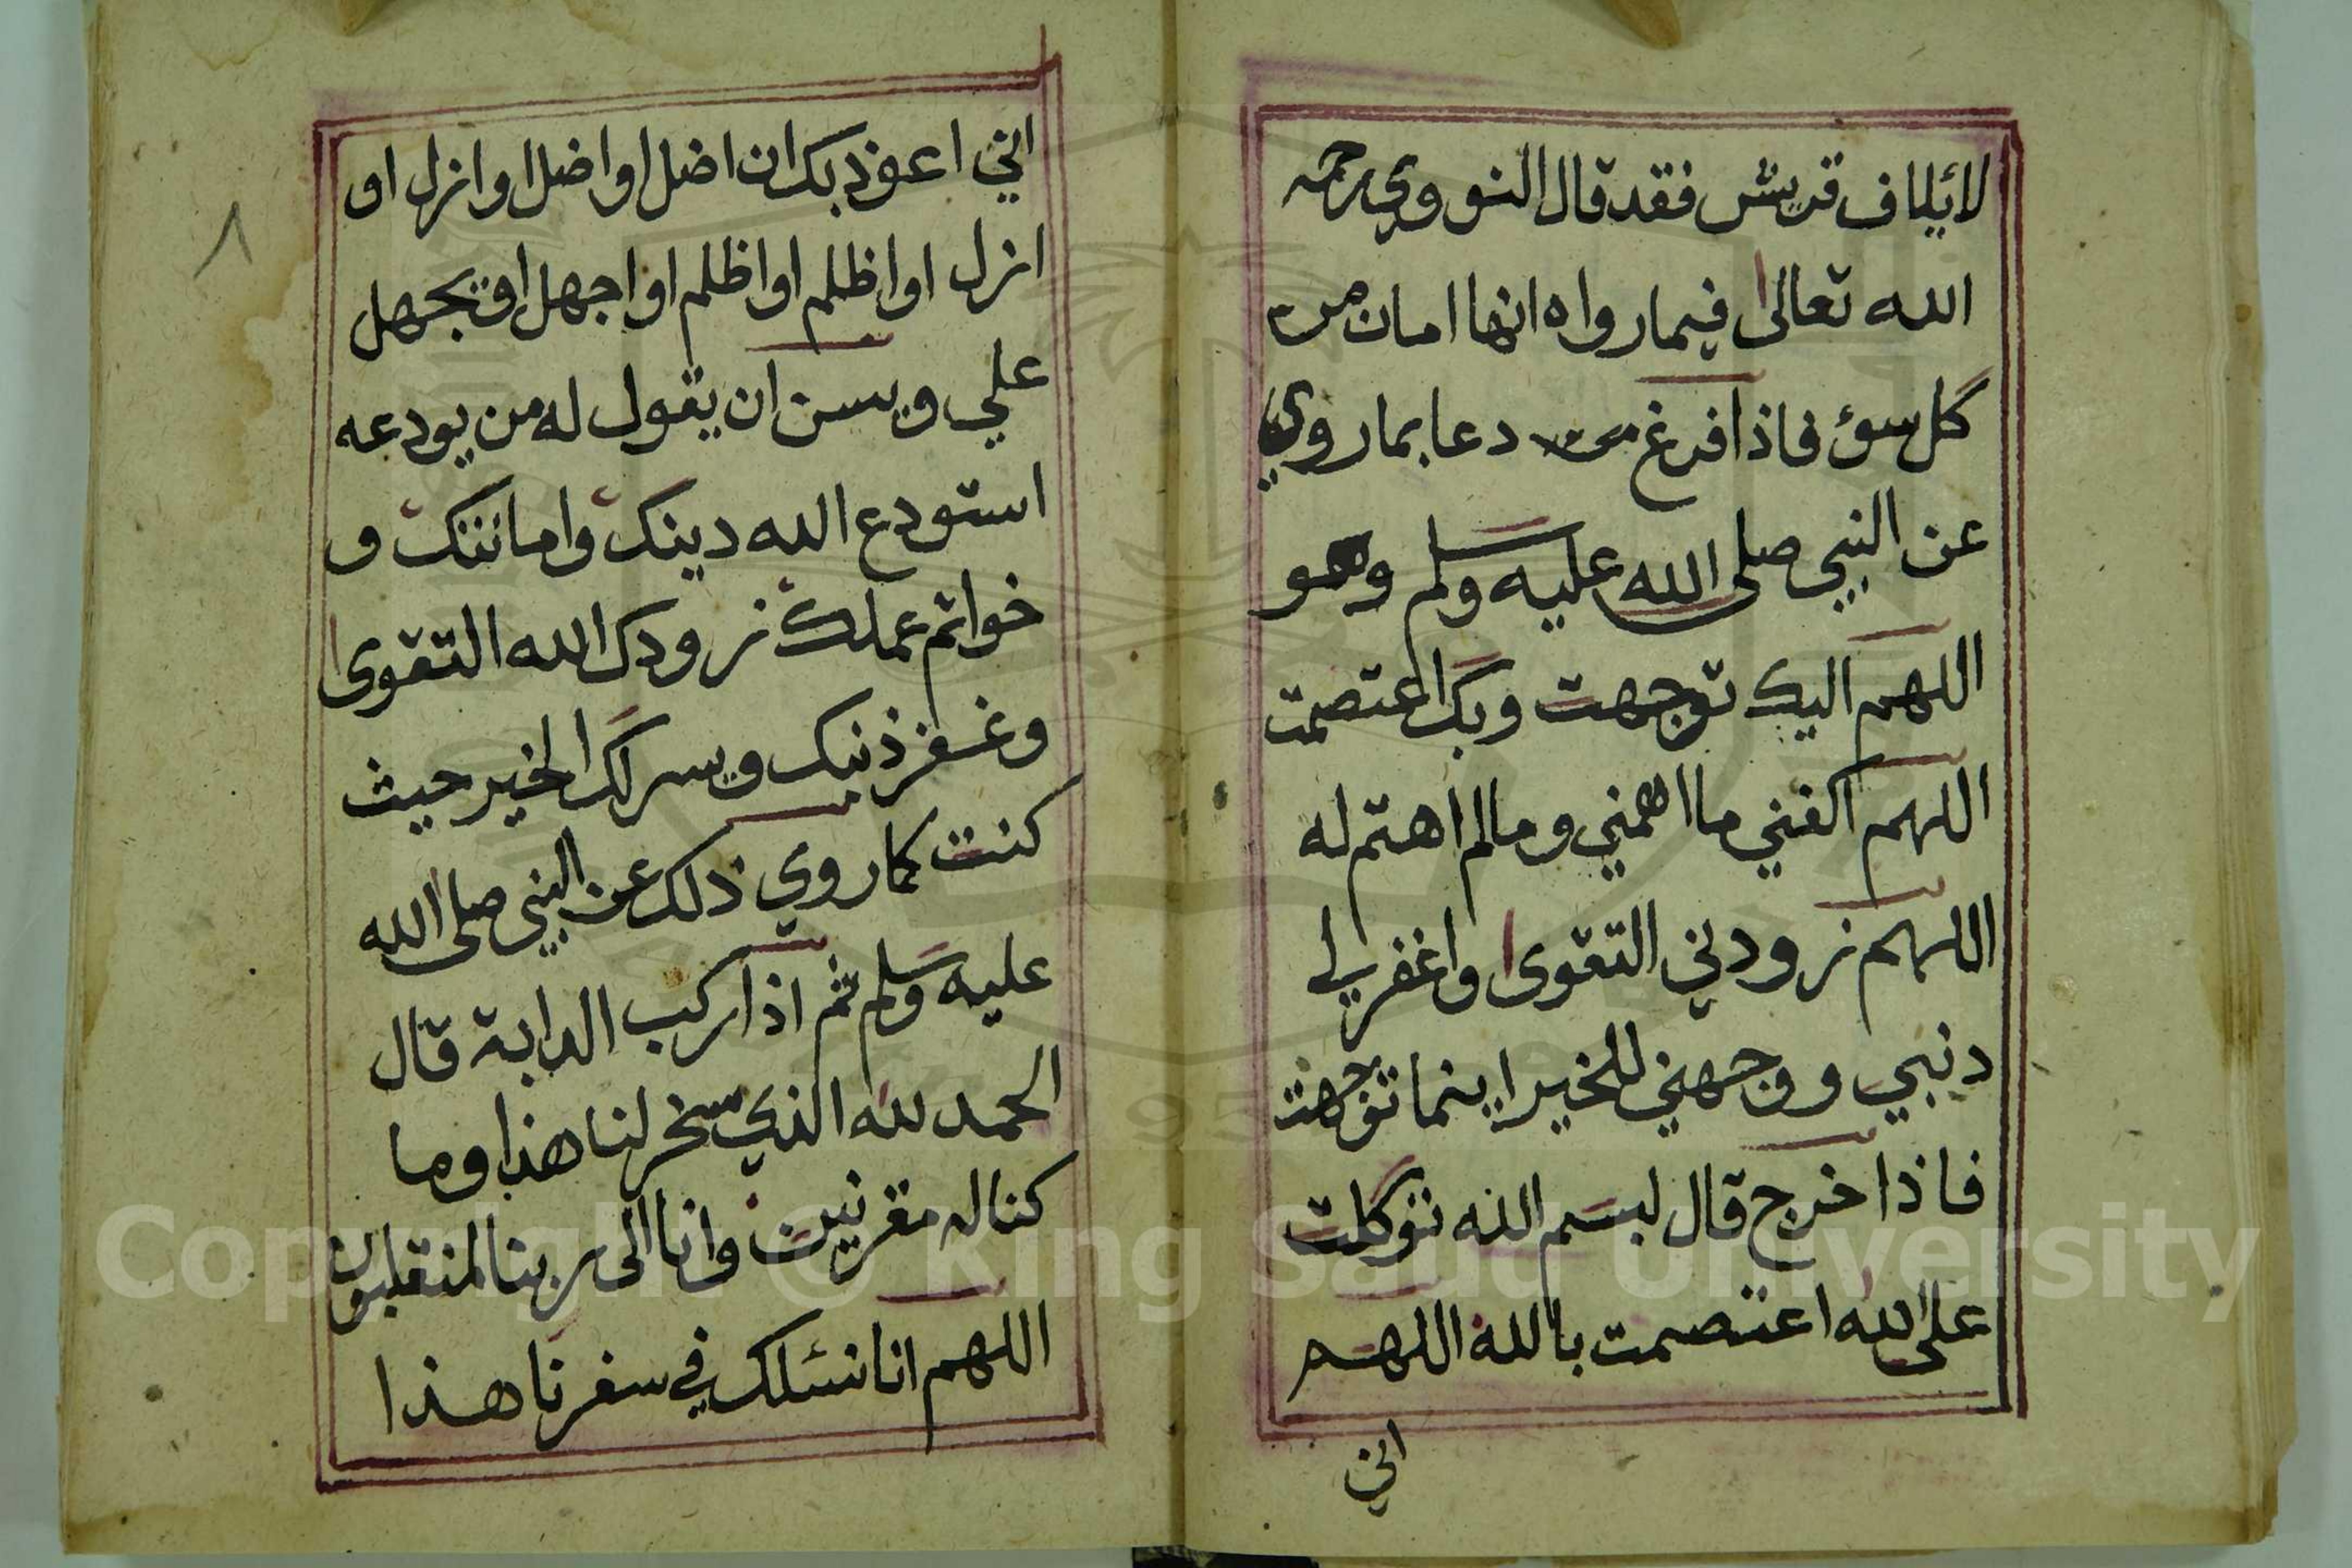 لائيلاف قريش فقد قال النووي رحمه
الله تعالى فيما رواه انها امان من
كل سوء فاذا فرغ دعا بما روي
عن النبي صلى الله عليه وسلم وهو
اللهم اليك توجهت وبك اعتصمت
اللهم اكفني ما اهمني وما لم اهتم له
اللهم زودني التقوى واغفر لي
دنبي ووجهني للخير اينما توجهت
فاذا خرج قال بسم الله توكلت
على الله اعتصمت بالله اللهم
اني
٨
اني اعوذ بك ان اضل او اضل او ازل او
ازل او اظلم او اظلم او اجهل او يجهل
علي ويسن ان يقول له من يودعه
استودع الله دينك وامانتك و
خواتم عملك زودك الله التقوى
وغفر ذنبك ويسر لك الخير حيث
كنت كما روي ذلك عن النبي صلى الله
عليه وسلم ثم اذا ركب الدابة قال
الحمد لله الذي سخر لنا هذا وما
كنا له مقرنين وانا الى ربنا لمنقلبون
اللهم انا نسئلك في سفرنا هذا
Copyright © King Saud University